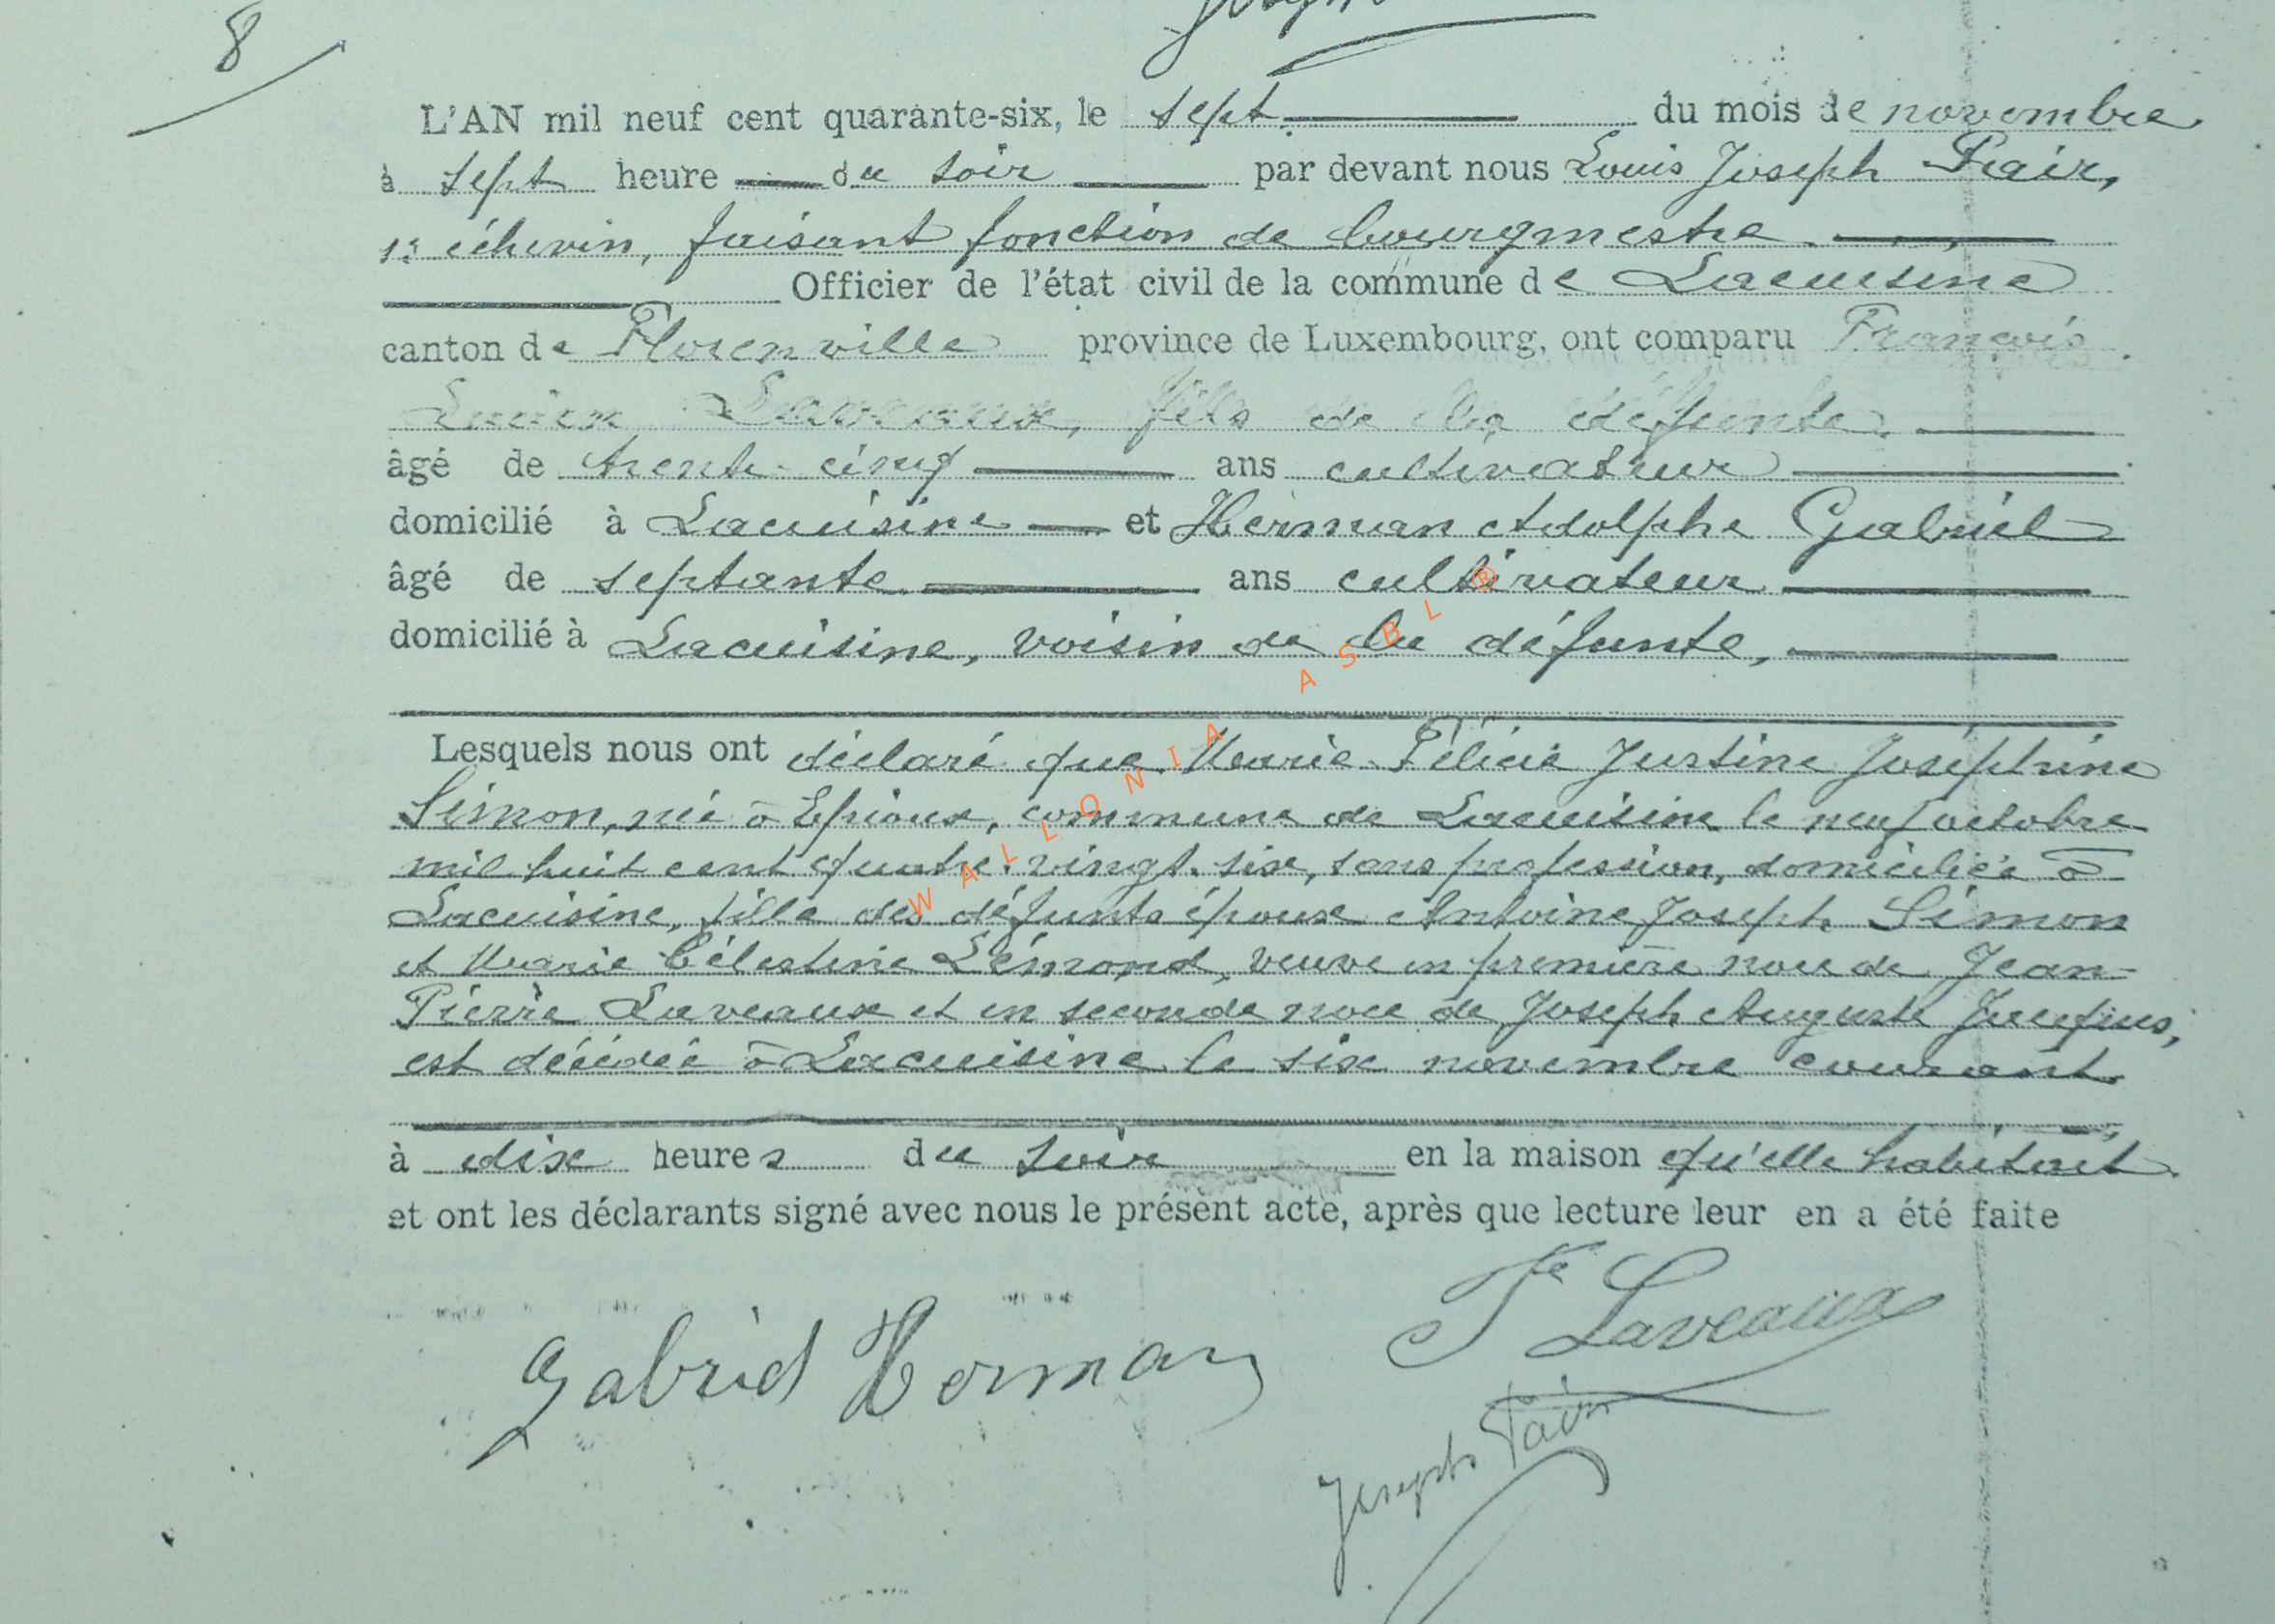 8
L'AN mil neuf cent quarante-six, le sept du mois de novembre
à sept heure du soir par devant nous Louis Joseph
1r échevin, faisant fonction de bourgmestre
Officier de l'état civil de la commune de Lacuisine
canton de Florenville province de Luxembourg, ont comparu François
Lucien Laveaux, fils de la défunte,
âgé de trente-cinq ans cultivateur
domicilié à Lacuisine et Herman Adolphe Gabriel
âgé de septante ans cultivateur
domicilié à Lacuisine, voisin de la défunte,
Lesquels nous ont déclaré que Marie Félicie Justine Joséphine
Simon, née à Epioux, commune de Lacuisine le neuf octobre
mil huit cent quatre-vingt-six, sans profession, domiciliée à
Lacuisine, fille des défunts époux Antoine Joseph Simon
et Marie Célestine Lémond, veuve en première noce de Jean-
Pierre Laveaux et en seconde noce de Joseph Auguste
est décédée à Lacuisine le six novembre courant
à dix heures du soir en la maison qu'elle habitait
et ont les déclarants signé avec nous le présent acte, après que lecture leur en a été faite
Gabriel Herman
Laveaux
Joseph
WALLONIA ASBL ®